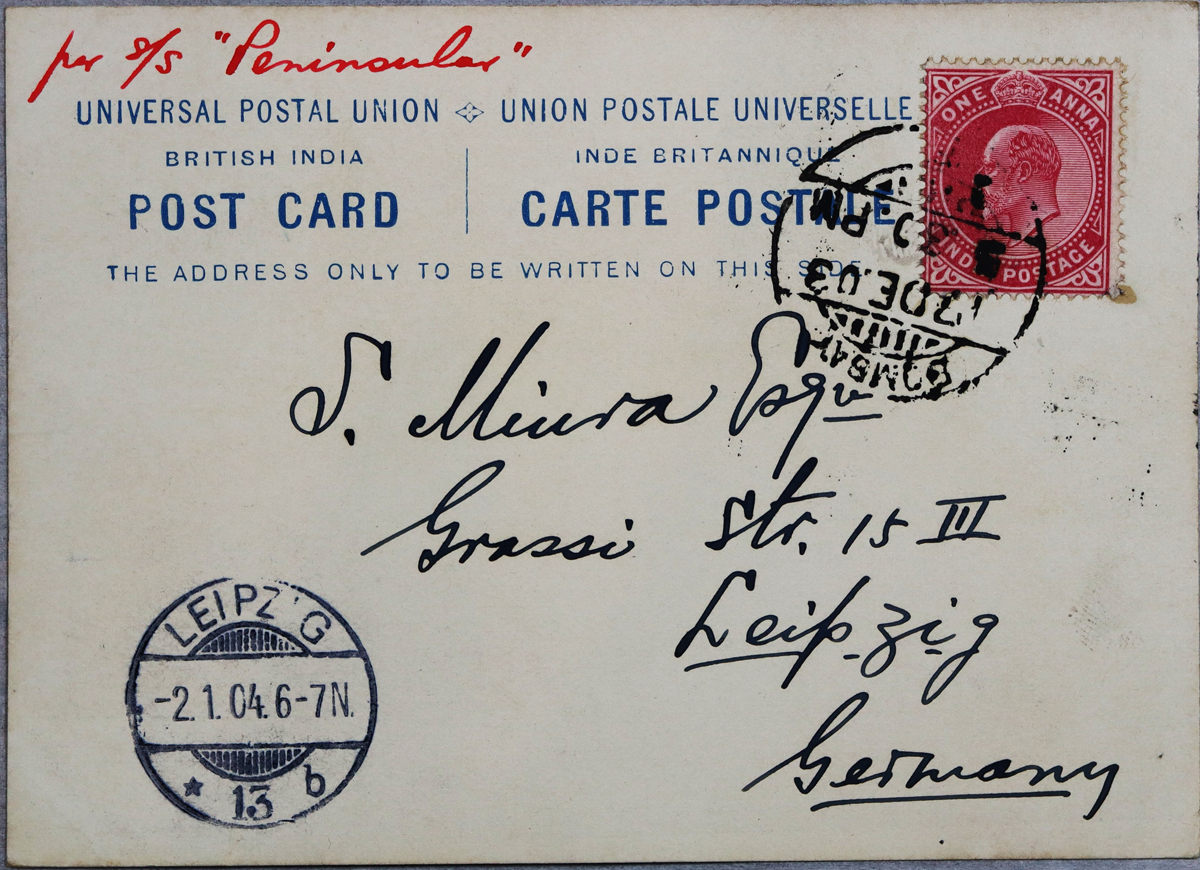 per s/s "Peninsular"
UNIVERSAL POSTAL UNION UNION POSTALE UNIVERSELLE
BRITISH INDIA INDE BRITANNIQUE
POST CARD CARTE POSTALE
THE ADDRESS ONLY TO BE WRITTEN ON THIS SIDE
ONE ANNA
INDIA POSTAGE
BOMBAY
17 DE.03
30 PM
S. Miura Esqr
Grassi Str. 15 III
Leipzig
Germany
LEIPZIG
-2.1.04.6-7N.
* 13 b